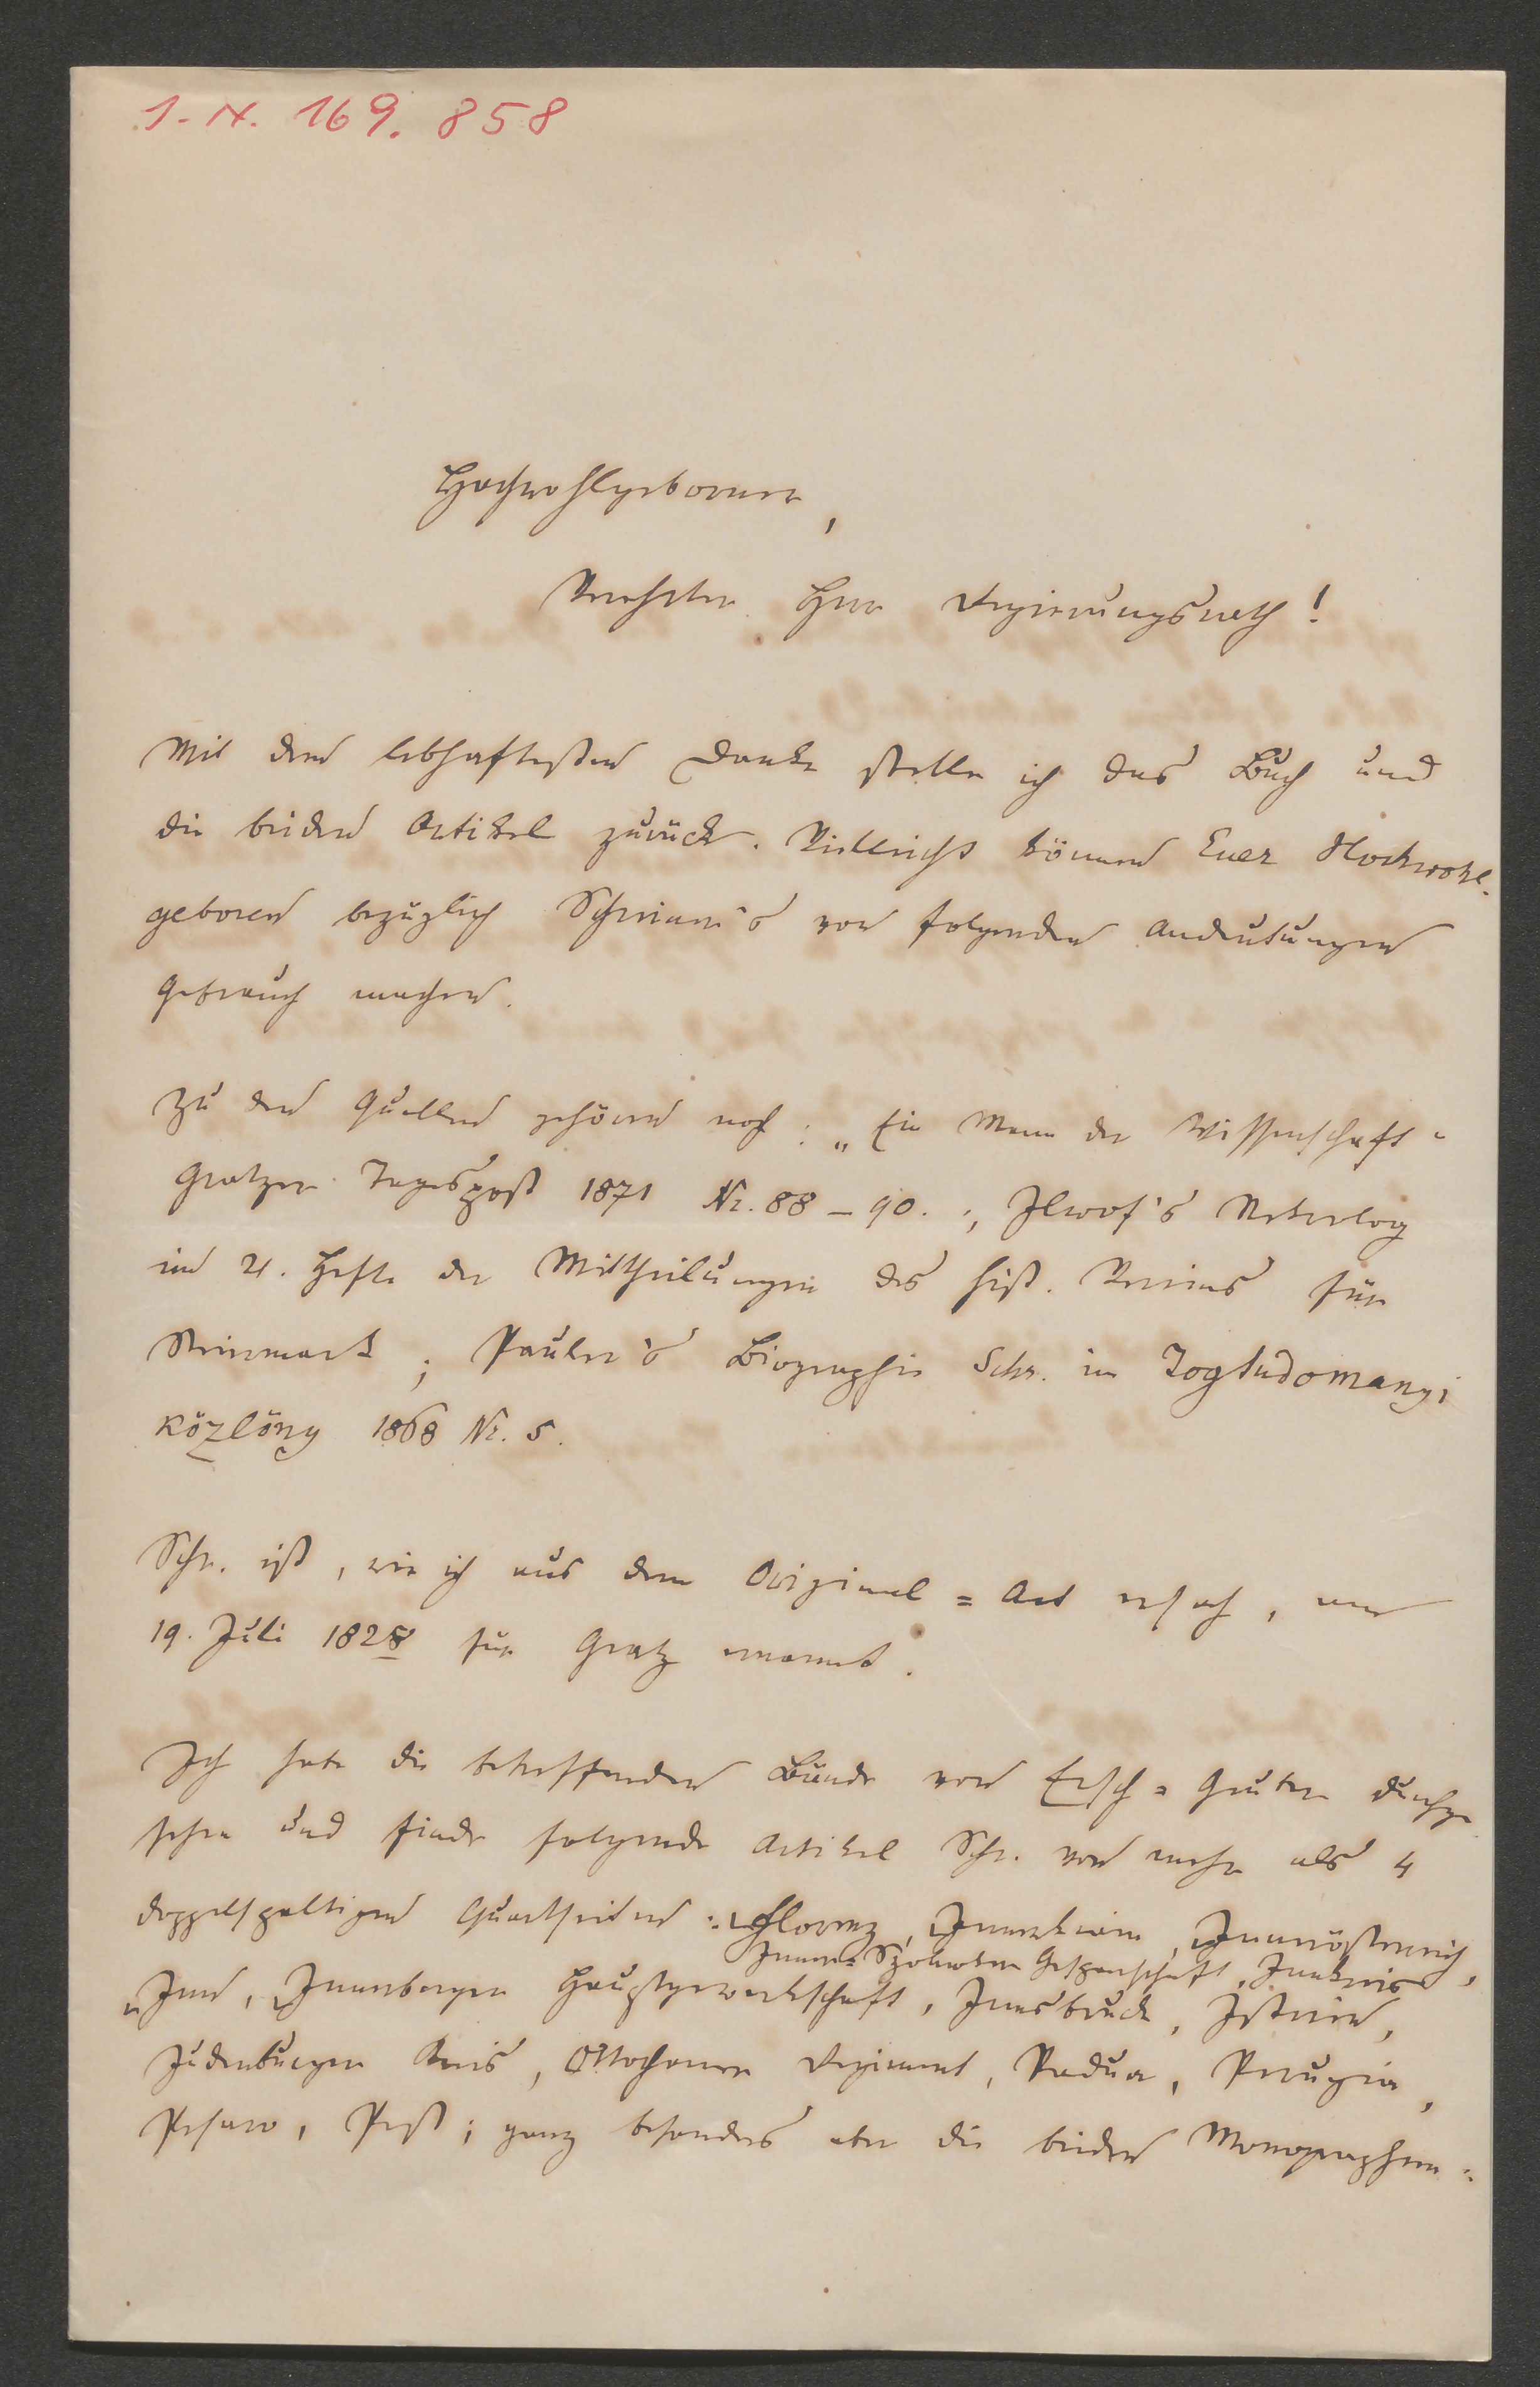 I.N. 169.858
Hochwohlgeborner,
Verehrter Herr Regierungsrath!
Mit dem lebhaftesten Danke stelle ich das Buch und
die beiden Artikel zurück. Vielleicht können Euer Hochwohl-
geboren bezüglich Schreiner's von folgenden Andeutungen
Gebrauch machen.
Zu den Quellen gehören noch: „Ein Mann der Wissenschaft"
Gratzer Tagespost 1871 Nr. 88–90.; Ilwof's Nekrolog
im 21. Hefte der Mittheilungen des hist. Vereines für
Steiermark; Pauler's Biographie Schr. im Jogtudomanyi
közlöny 1868 Nr. 5.
Schr. ist, wie ich aus dem Original=Act ersah, am
19. Juli 1828 für Gratz ernannt.
Ich habe die betreffenden Bände von Ersch=Gruber durchge
sehen und finde folgende Artikel Schr. von mehr als 4
doppelspaltigen Quartseiten: Florenz, Innerkrain, Innerösterreich,
Inner=Szolnoker Gespanschaft, Innkreis
Inn, Innerberger Hauptgewerkschaft, Innsbruck, Istrien,
Judenburger Kreis, Ottochaner Regiment, Padua, Perugia,
Pesaro, Pest; ganz besonders aber die beiden Monographien: